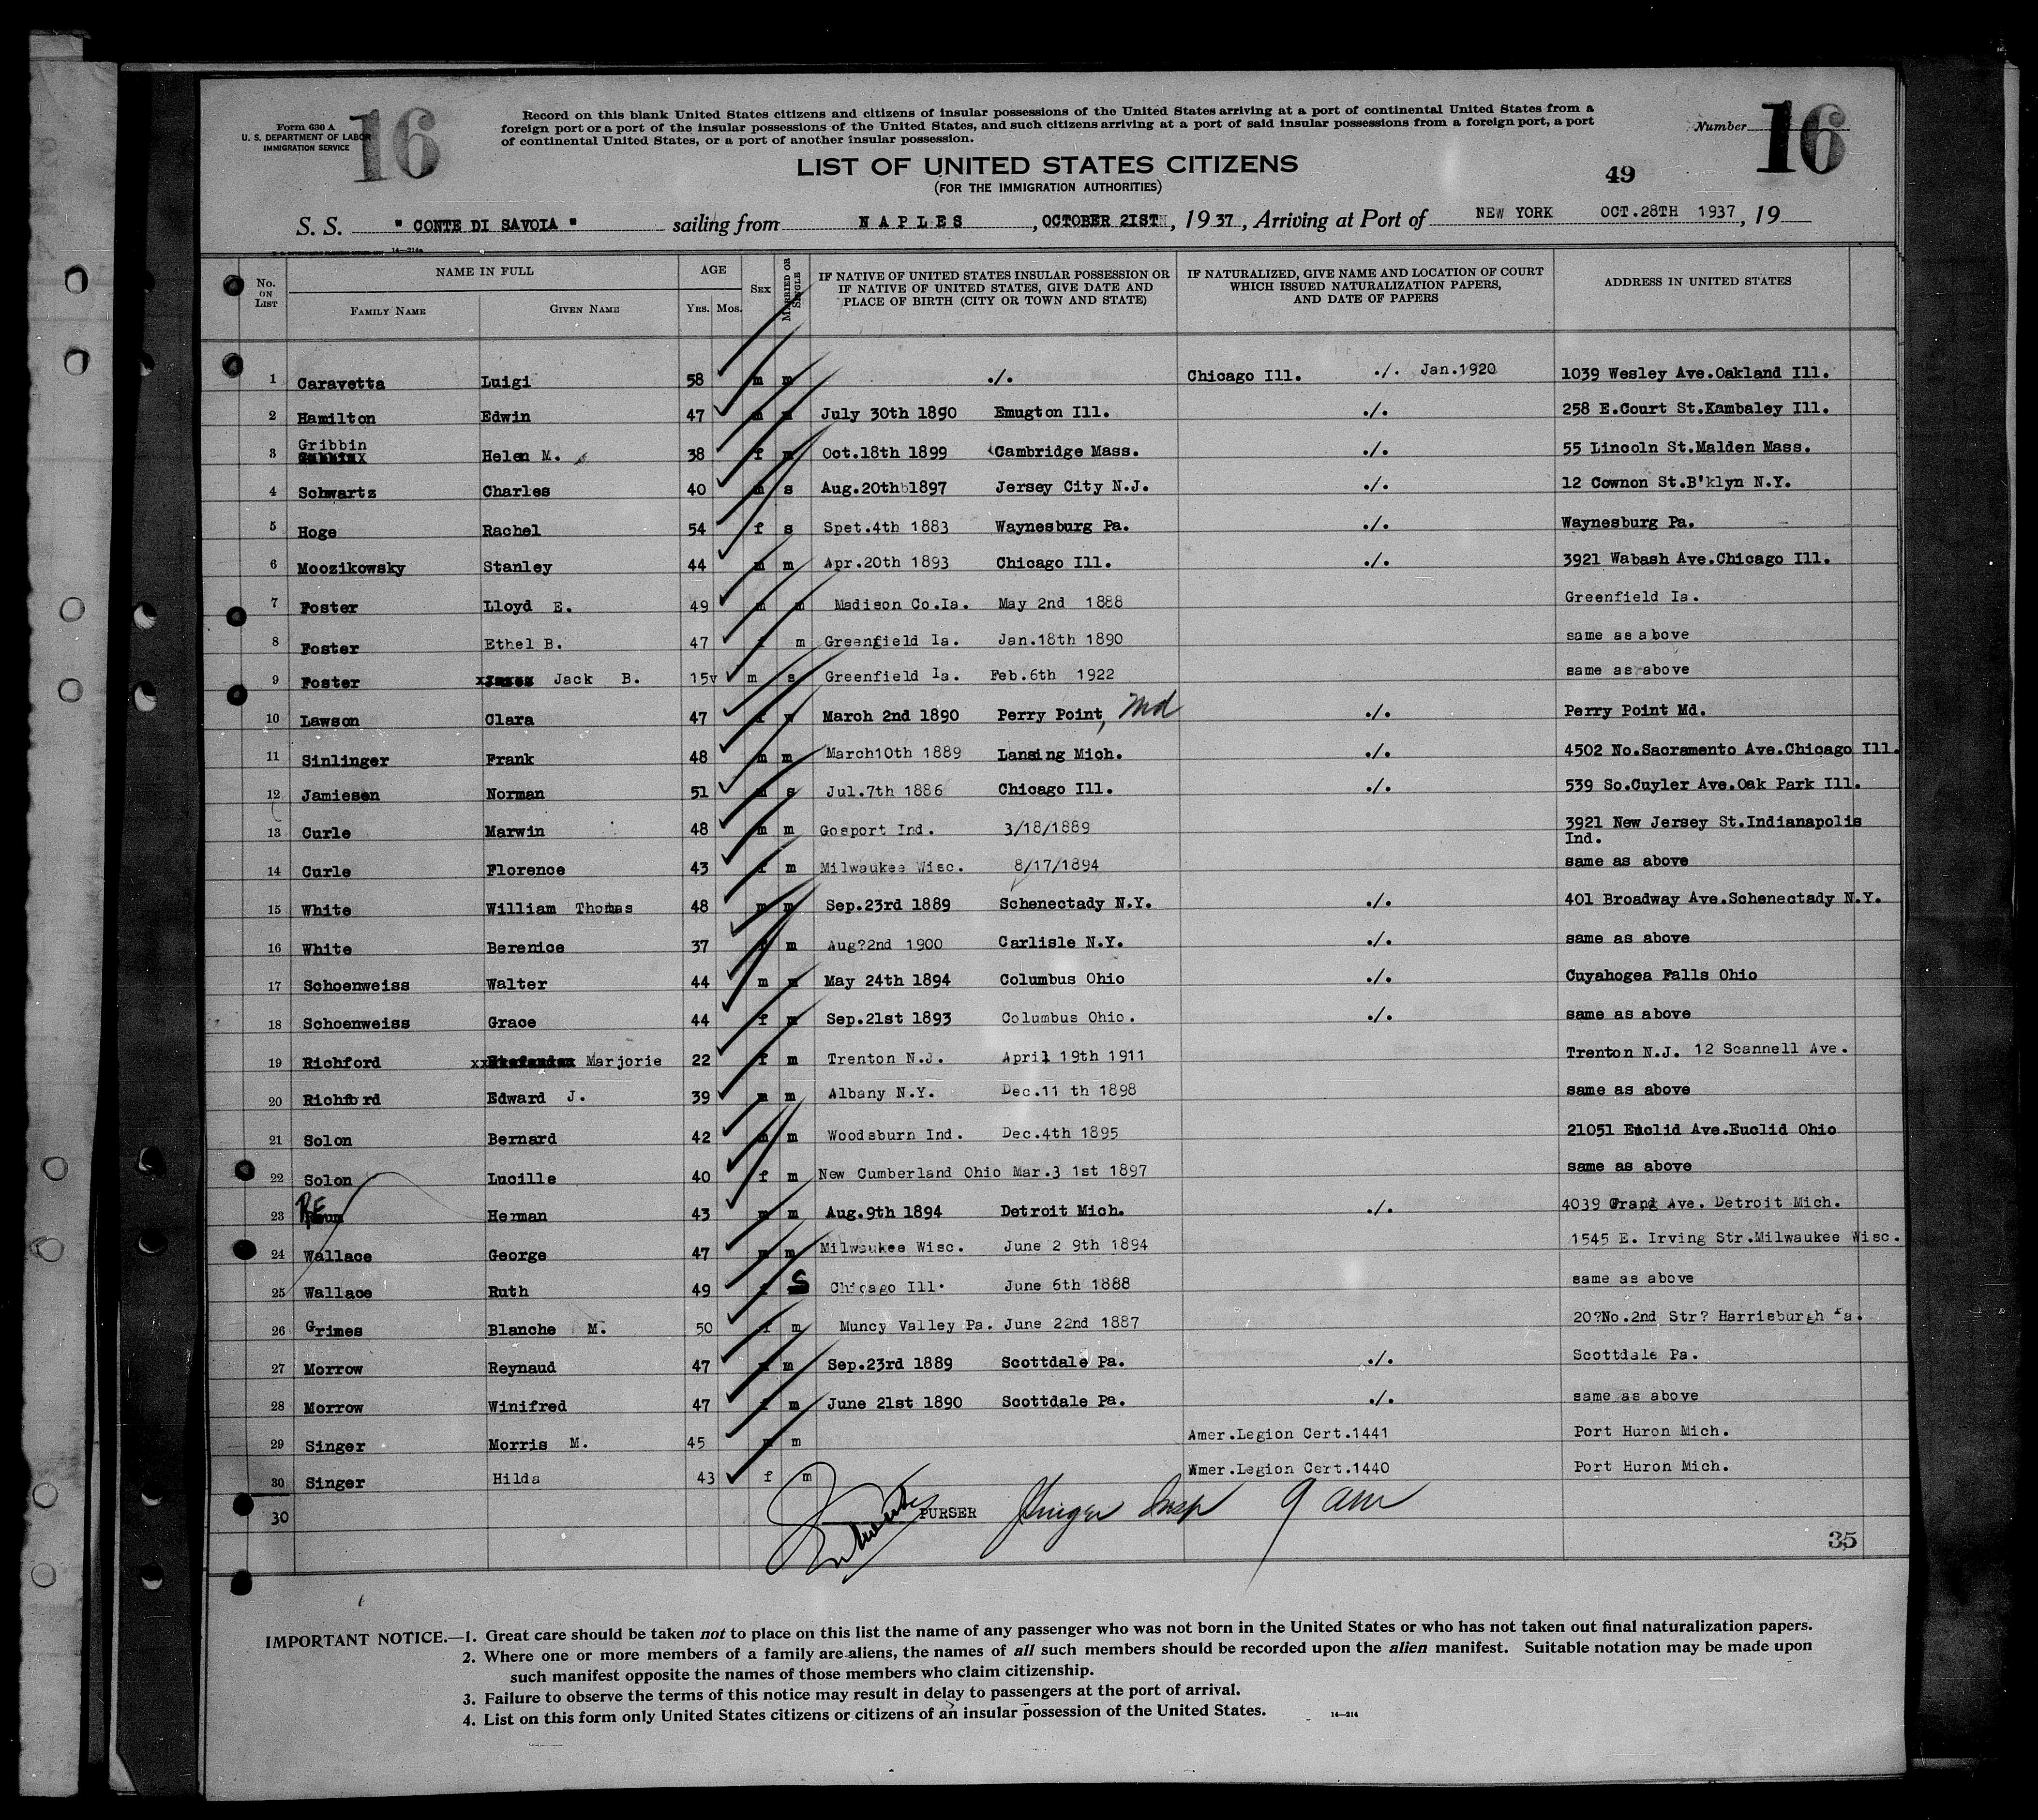 16
Form 630 A
U. S. DEPARTMENT OF LABOR
IMMIGRATION SERVICE
Record on this blank United States citizens and citizens of insular possessions of the United States arriving at a port of continental United States from a
foreign port or a port of the insular possessions of the United States, and such citizens arriving at a port of said insular possessions from a foreign port, a port
of continental United States, or a port of another insular possession.
Number 16
LIST OF UNITED STATES CITIZENS
(FOR THE IMMIGRATION AUTHORITIES)
49
S. S. " CONTE DI SAVOIA " sailing from NAPLES , OCTOBER 21ST , 1937 , Arriving at Port of NEW YORK OCT.28TH 1937 , 19
No. ON LIST NAME IN FULL FAMILY NAME GIVEN NAME AGE YRS. MOS. SEX MARRIED OR SINGLE IF NATIVE OF UNITED STATES INSULAR POSSESSION OR IF NATIVE OF UNITED STATES, GIVE DATE AND PLACE OF BIRTH (CITY OR TOWN AND STATE) IF NATURALIZED, GIVE NAME AND LOCATION OF COURT WHICH ISSUED NATURALIZATION PAPERS, AND DATE OF PAPERS ADDRESS IN UNITED STATES
1 Caravetta Luigi 58 m m ./. Chicago Ill. ./. Jan.1920 1039 Wesley Ave.Oakland Ill.
2 Hamilton Edwin 47 m m July 30th 1890 Emugton Ill. ./. 258 E.Court St.Kambaley Ill.
3 Gribbin Helen M. 38 f m Oct.18th 1899 Cambridge Mass. ./. 55 Lincoln St.Malden Mass.
4 Schwartz Charles 40 m s Aug.20th 1897 Jersey City N.J. ./. 12 Cownon St.B'klyn N.Y.
5 Hoge Rachel 54 f s Spet.4th 1883 Waynesburg Pa. ./. Waynesburg Pa.
6 Moozikowsky Stanley 44 m m Apr.20th 1893 Chicago Ill. ./. 3921 Wabash Ave.Chicago Ill.
7 Foster Lloyd E. 49 m m Madison Co.Ia. May 2nd 1888 Greenfield Ia.
8 Foster Ethel B. 47 f m Greenfield Ia. Jan.18th 1890 same as above
9 Foster Jack B. 15 m s Greenfield Ia. Feb.6th 1922 same as above
10 Lawson Clara 47 f w March 2nd 1890 Perry Point, Md ./. Perry Point Md.
11 Sinlinger Frank 48 m m March10th 1889 Lansing Mich. ./. 4502 No.Sacramento Ave.Chicago Ill.
12 Jamiesen Norman 51 m s Jul.7th 1886 Chicago Ill. ./. 539 So.Cuyler Ave.Oak Park Ill.
13 Curle Marwin 48 m m Gosport Ind. 3/18/1889 3921 New Jersey St.Indianapolis
Ind.
14 Curle Florence 43 f m Milwaukee Wisc. 8/17/1894 same as above
15 White William Thomas 48 m m Sep.23rd 1889 Schenectady N.Y. ./. 401 Broadway Ave.Schenectady N.Y.
16 White Berenice 37 f m Aug?2nd 1900 Carlisle N.Y. ./. same as above
17 Schoenweiss Walter 44 m m May 24th 1894 Columbus Ohio ./. Cuyahogea Falls Ohio
18 Schoenweiss Grace 44 f m Sep.21st 1893 Columbus Ohio. ./. same as above
19 Richford Marjorie 22 f m Trenton N.J. April 19th 1911 Trenton N.J. 12 Scannell Ave.
20 Richford Edward J. 39 m m Albany N.Y. Dec.11 th 1898 same as above
21 Solon Bernard 42 m m Woodsburn Ind. Dec.4th 1895 21051 Euclid Ave.Euclid Ohio
22 Solon Lucille 40 f m New Cumberland Ohio Mar.3 1st 1897 same as above
23 Herman 43 m m Aug.9th 1894 Detroit Mich. ./. 4039 Grand Ave. Detroit Mich.
24 Wallace George 47 m m Milwaukee Wisc. June 2 9th 1894 1545 E. Irving Str.Milwaukee Wisc.
25 Wallace Ruth 49 f S Chicago Ill. June 6th 1888 same as above
26 Grimes Blanche M. 50 f m Muncy Valley Pa. June 22nd 1887 20?No.2nd Str? Harrisburgh Pa.
27 Morrow Reynaud 47 m m Sep.23rd 1889 Scottdale Pa. ./. Scottdale Pa.
28 Morrow Winifred 47 f m June 21st 1890 Scottdale Pa. ./. same as above
29 Singer Morris M. 45 m m Amer.Legion Cert.1441 Port Huron Mich.
30 Singer Hilda 43 f m Wmer.Legion Cert.1440 Port Huron Mich.
30 PURSER Insp 9 am
35
IMPORTANT NOTICE.—1. Great care should be taken not to place on this list the name of any passenger who was not born in the United States or who has not taken out final naturalization papers.
2. Where one or more members of a family are aliens, the names of all such members should be recorded upon the alien manifest. Suitable notation may be made upon
such manifest opposite the names of those members who claim citizenship.
3. Failure to observe the terms of this notice may result in delay to passengers at the port of arrival.
4. List on this form only United States citizens or citizens of an insular possession of the United States.
14—214